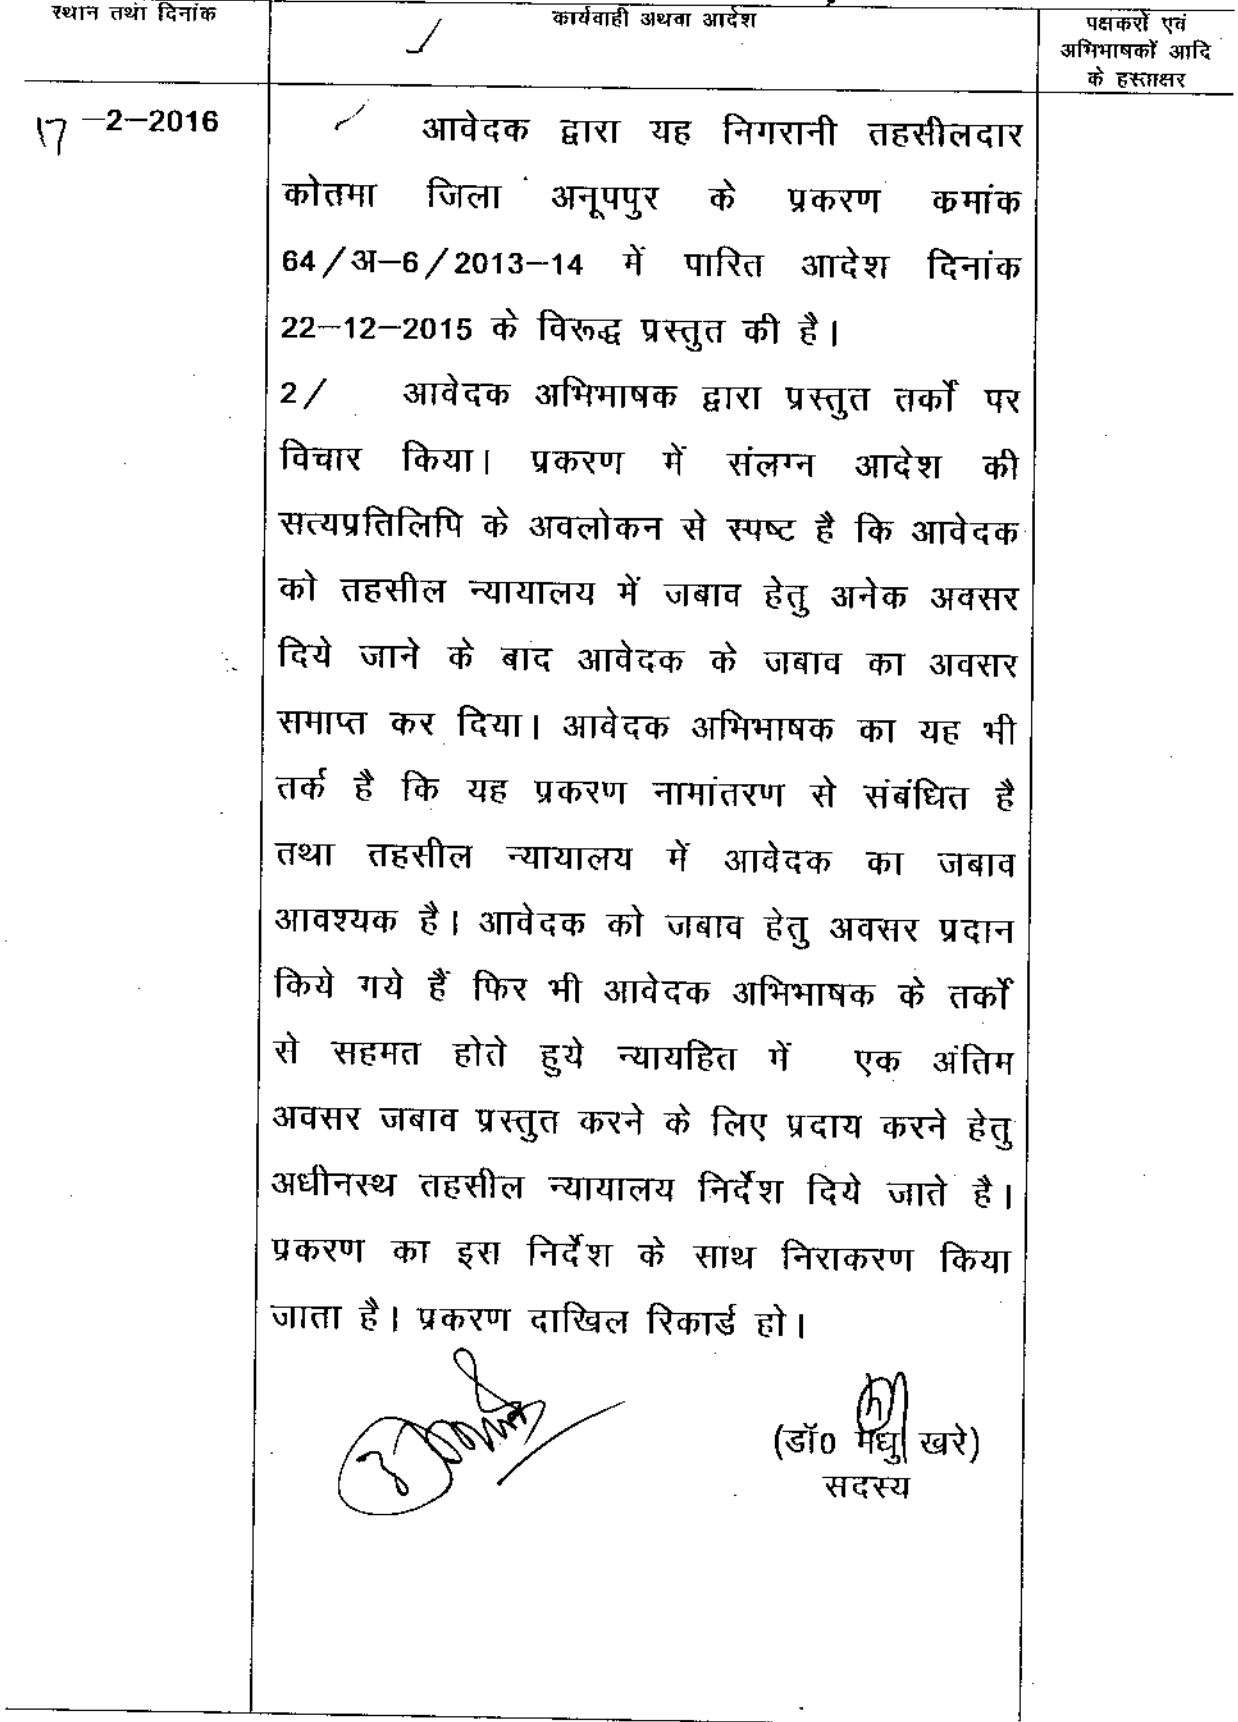 स्थान तथा दिनांक
कार्यवाही अथवा आदेश
पक्षकरों एवं
अभिभाषकों आदि
के हस्ताक्षर
17 –2–2016
आवेदक द्वारा यह निगरानी तहसीलदार
कोतमा जिला अनूपपुर के प्रकरण कमांक
64/अ–6/2013–14 में पारित आदेश दिनांक
22–12–2015 के विरूद्ध प्रस्तुत की है।
2/ आवेदक अभिभाषक द्वारा प्रस्तुत तर्कों पर
विचार किया। प्रकरण में संलग्न आदेश की
सत्यप्रतिलिपि के अवलोकन से स्पष्ट है कि आवेदक
को तहसील न्यायालय में जबाव हेतु अनेक अवसर
दिये जाने के बाद आवेदक के जबाव का अवसर
समाप्त कर दिया। आवेदक अभिभाषक का यह भी
तर्क है कि यह प्रकरण नामांतरण से संबंधित है
तथा तहसील न्यायालय में आवेदक का जबाव
आवश्यक है। आवेदक को जबाव हेतु अवसर प्रदान
किये गये हैं फिर भी आवेदक अभिभाषक के तर्कों
से सहमत होते हुये न्यायहित में एक अंतिम
अवसर जबाव प्रस्तुत करने के लिए प्रदाय करने हेतु
अधीनस्थ तहसील न्यायालय निर्देश दिये जाते है।
प्रकरण का इस निर्देश के साथ निराकरण किया
जाता है। प्रकरण दाखिल रिकार्ड हो।
(डॉ0 मधु खरे)
सदस्य